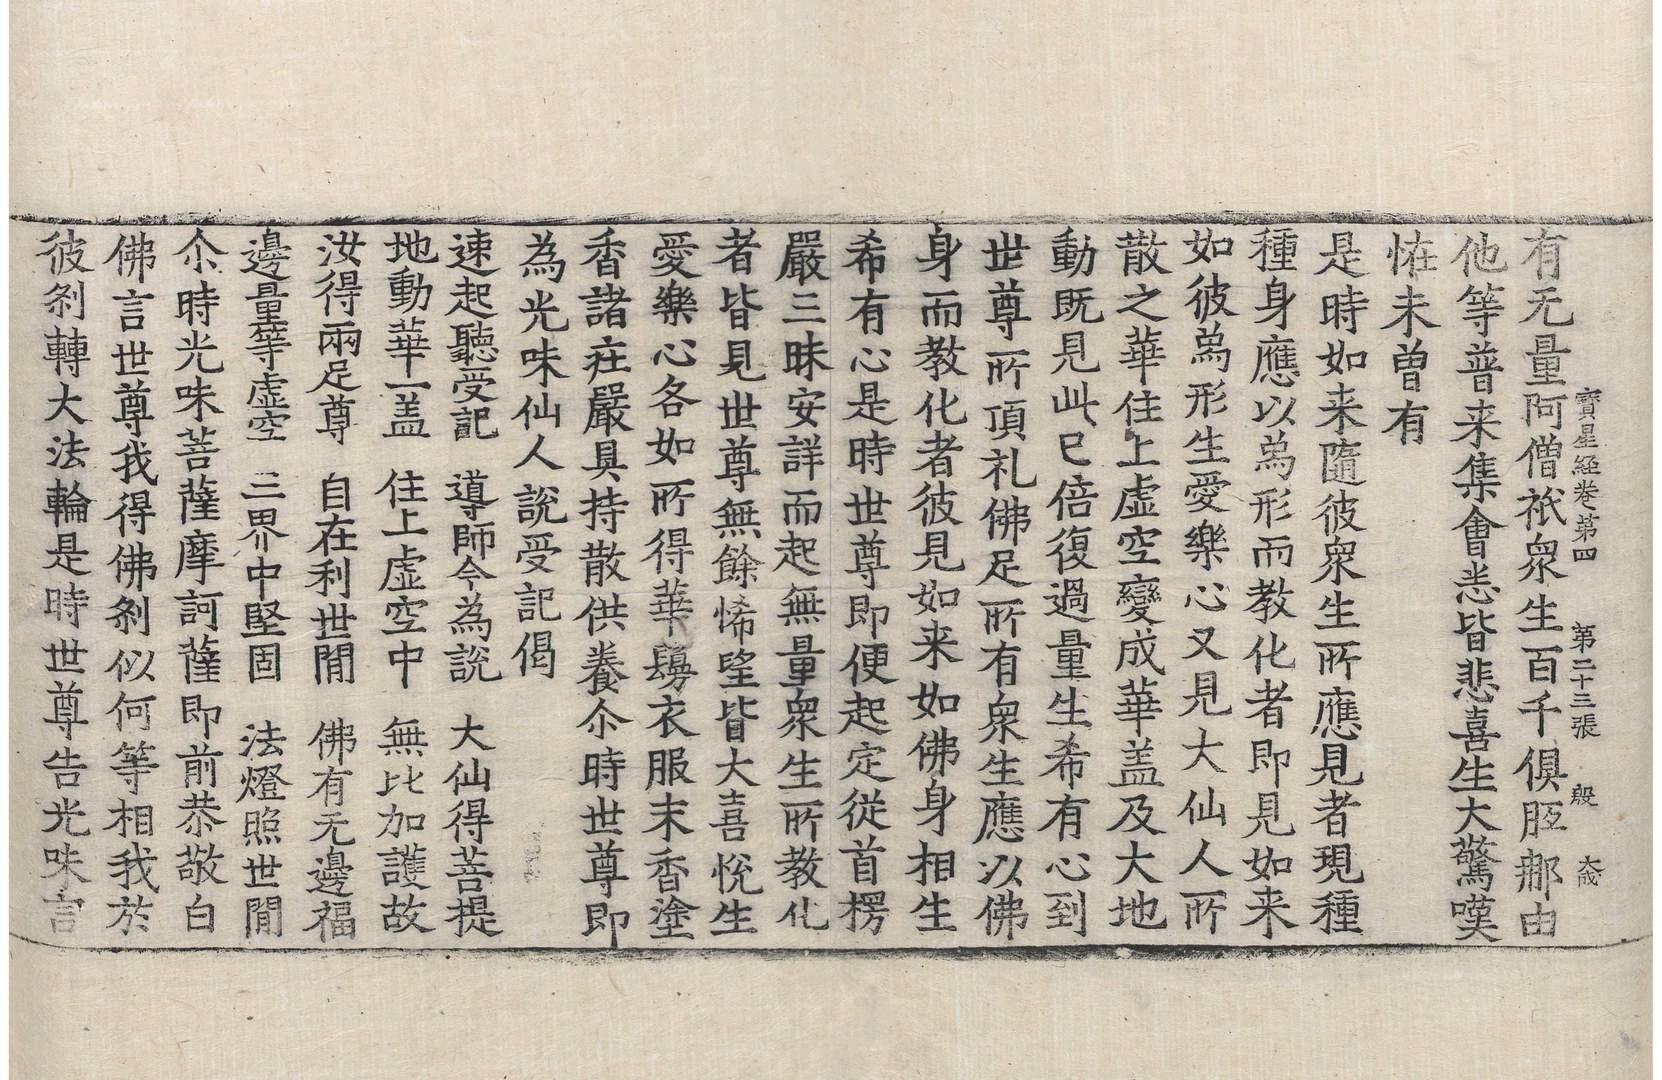 寳星経卷第四　第二十三張　殷　大成
有无量阿僧祇衆生百千俱胝那由
他等普来集會悉皆悲喜生大驚嘆
恠未曽有
是時如来隨彼衆生所應見者現種
種身應以爲形而教化者即見如来
如彼爲形生愛樂心又見大仙人所
散之華住上虛空變成華盖及大地
動既見此已倍復過量生希有心到
世尊所頂礼佛足所有衆生應以佛
身而教化者彼見如来如佛身相生
希有心是時世尊即便起定從首楞
嚴三昧安詳而起無量衆生所教化
者皆見世尊無餘悕望皆大喜悅生
愛樂心各如所得華鬘衣服末香塗
香諸疘嚴具持散供養尒時世尊即
為光味仙人說受記偈
速起聽受記　導師今為說　大仙得菩提
地動華一盖　住上虛空中　無比加護故
汝得兩足尊　自在利世閒　佛有无邊福
邊量等虛空　三界中堅固　法燈照世閒
尒時光味菩薩摩訶薩即前恭敬白
佛言世尊我得佛刹似何等相我於
彼刹轉大法輪是時世尊告光味言